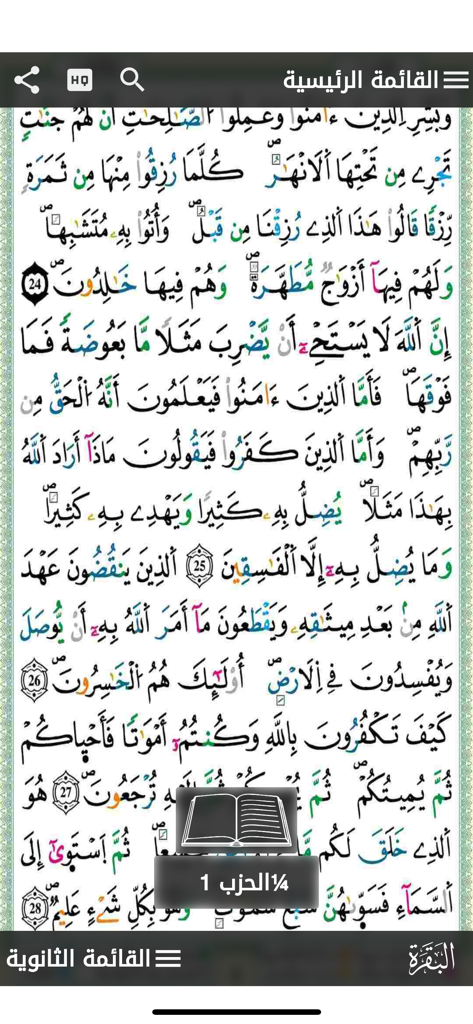 القائمة الرئيسية
وَبَشِّرِ اِ۬لذِينَ ءَامَنُواْ وَعَمِلُواْ اُ۬لصَّٰلِحَٰتِ أَنَّ لَهُمْ جَنَّٰتٖ
تَجْرِے مِن تَحْتِهَا اَ۬لَانْهَٰرُۖ كُلَّمَا رُزِقُواْ مِنْهَا مِن ثَمَرَةٖ
رِّزْقاٗ قَالُواْ هَٰذَا اَ۬لذِے رُزِقْنَا مِن قَبْلُۖ وَأُتُواْ بِهِۦ مُتَشَٰبِهاٗۖ
وَلَهُمْ فِيهَآ أَزْوَٰجٞ مُّطَهَّرَةٞۖ وَهُمْ فِيهَا خَٰلِدُونَۖ 24
إِنَّ اَ۬للَّهَ لَا يَسْتَحْيِۦٓ أَنْ يَّضْرِبَ مَثَلاٗ مَّا بَعُوضَةٗ فَمَا
فَوْقَهَاۖ فَأَمَّا اَ۬لذِينَ ءَامَنُواْ فَيَعْلَمُونَ أَنَّهُ اُ۬لْحَقُّ مِن
رَّبِّهِمْۖ وَأَمَّا اَ۬لذِينَ كَفَرُواْ فَيَقُولُونَ مَاذَآ أَرَادَ اَ۬للَّهُ
بِهَٰذَا مَثَلاٗۖ يُضِلُّ بِهِۦ كَثِيراٗ وَيَهْدِے بِهِۦ كَثِيراٗۖ
وَمَا يُضِلُّ بِهِۦٓ إِلَّا اَ۬لْفَٰسِقِينَ 25 اَ۬لذِينَ يَنقُضُونَ عَهْدَ
اَ۬للَّهِ مِنۢ بَعْدِ مِيثَٰقِهِۦ وَيَقْطَعُونَ مَآ أَمَرَ اَ۬للَّهُ بِهِۦٓ أَنْ يُّوصَلَ
وَيُفْسِدُونَ فِے اِ۬لَارْضِۖ أُوْلَٰٓئِكَ هُمُ اُ۬لْخَٰسِرُونَۖ 26
كَيْفَ تَكْفُرُونَ بِاللَّهِ وَكُنتُمُۥٓ أَمْوَٰتاٗ فَأَحْيٰاكُمْ
ثُمَّ يُمِيتُكُمْۖ ثُمَّ تُرْجَعُونَۖ 27 هُوَ
اَ۬لذِے خَلَقَ لَكُم ثُمَّ اَ۪سْتَوَىٰٓ إِلَى
اَ۬لسَّمَآءِ فَسَوّٰىٰهُنَّ سَبْعَ سَمَٰوَٰتٖۖ وَهْوَ بِكُلِّ شَےْءٍ عَلِيمٞۖ 28
¼الحزب 1
القائمة الثانوية
البَقَرَة
HQ